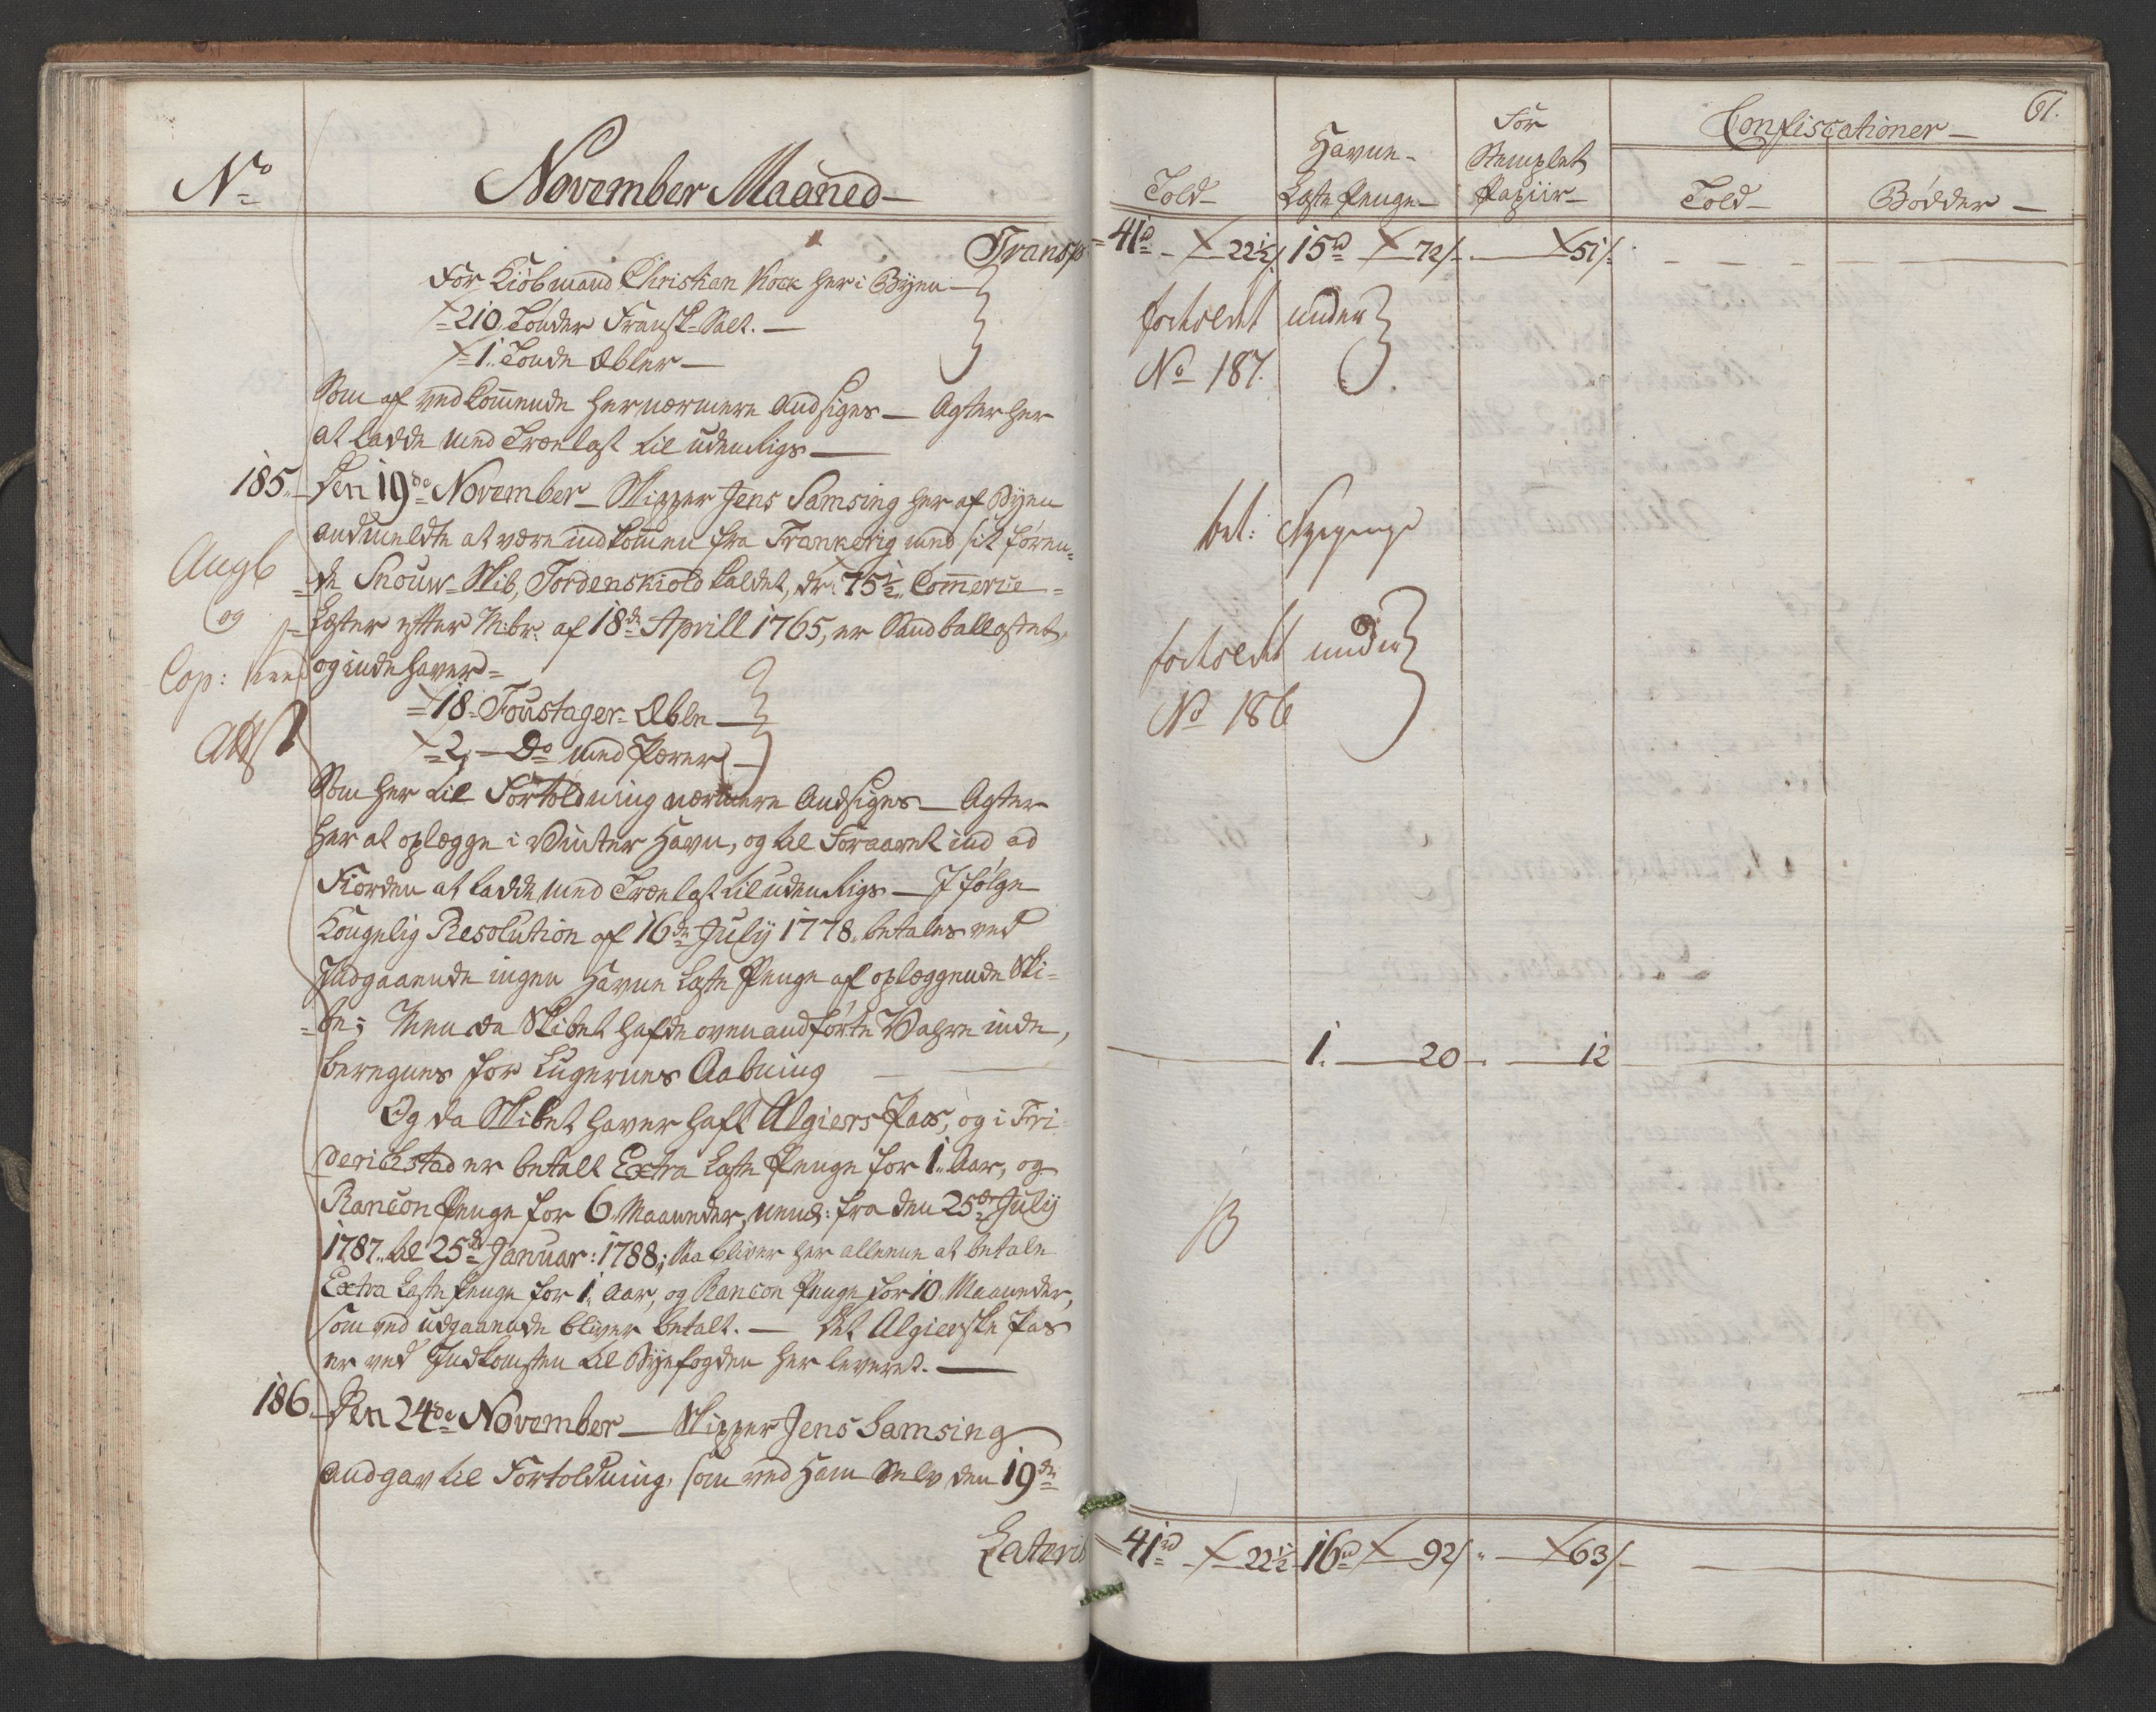 No
November Maaned
Transp
For Kiöbmand Christian Kock her i Byen
210 Tönder Fransk Salt.
1 Tönde Æbler
Som af vedkommende her nærmere Andsiges — Agter her
at ladde med Trælast til udenrigs
185. Den 19de November — Skipper Jens Samsing her af Byen
andmeldte at være indkommen fra Frankerig med sit føren-
de Snouw-Skib, Tordenskiold kaldet, dr: 75½ Commerce-
Læster efter M:br: af 18de Aprill 1765, er Sandballastet,
og indehaver
18 Foustager Æble
2 — Do med Pærer
Som her til Fortoldning nærmere Andsiges — Agter
her at oplægge i Winter Havn, og til Foraaret ind ad
Fiorden at ladde med Trælast til udenrigs — I følge
Kongelig Resolution af 16de Julÿ 1778 betales ved
Indgaaende ingen Havne Læste Penge af oplæggende Ski-
be; Men da Skibet hafde ovenandførte Wahre inde,
beregnes for Lugernes Aabning
Og da Skibet haver haft Algiers Pas, og i Fri-
derichstad er betalt Extra Læste Penge for 1 Aar, og
Rancon Penge for 6 Maaneder, neml: fra den 25de Julÿ
1787 til 25de Januar: 1788; saa bliver her alleene at betale
Extra Læste Penge for 1 Aar, og Rancon Penge for 10 Maaneder,
som ved udgaaende bliver betalt. — Det Algierske Pas
er ved Indkomsten til Byefogden her leveret.
186. Den 24de November — Skipper Jens Samsing
andgav til Fortoldning, som ved Ham Selv den 19de
Lateris
Angb
og
Cop: med
Att
61.
Told
Havne-
Læste Penge
For
Stemplet
Papiir
Confiscationer
Told
Bödder
41rd 22½ 15rd 72s 51s
fortoldet under
No 187.
bet:
fortoldet under
No 186
1. 20 12
41rd 22½ 16rd 92s 63s